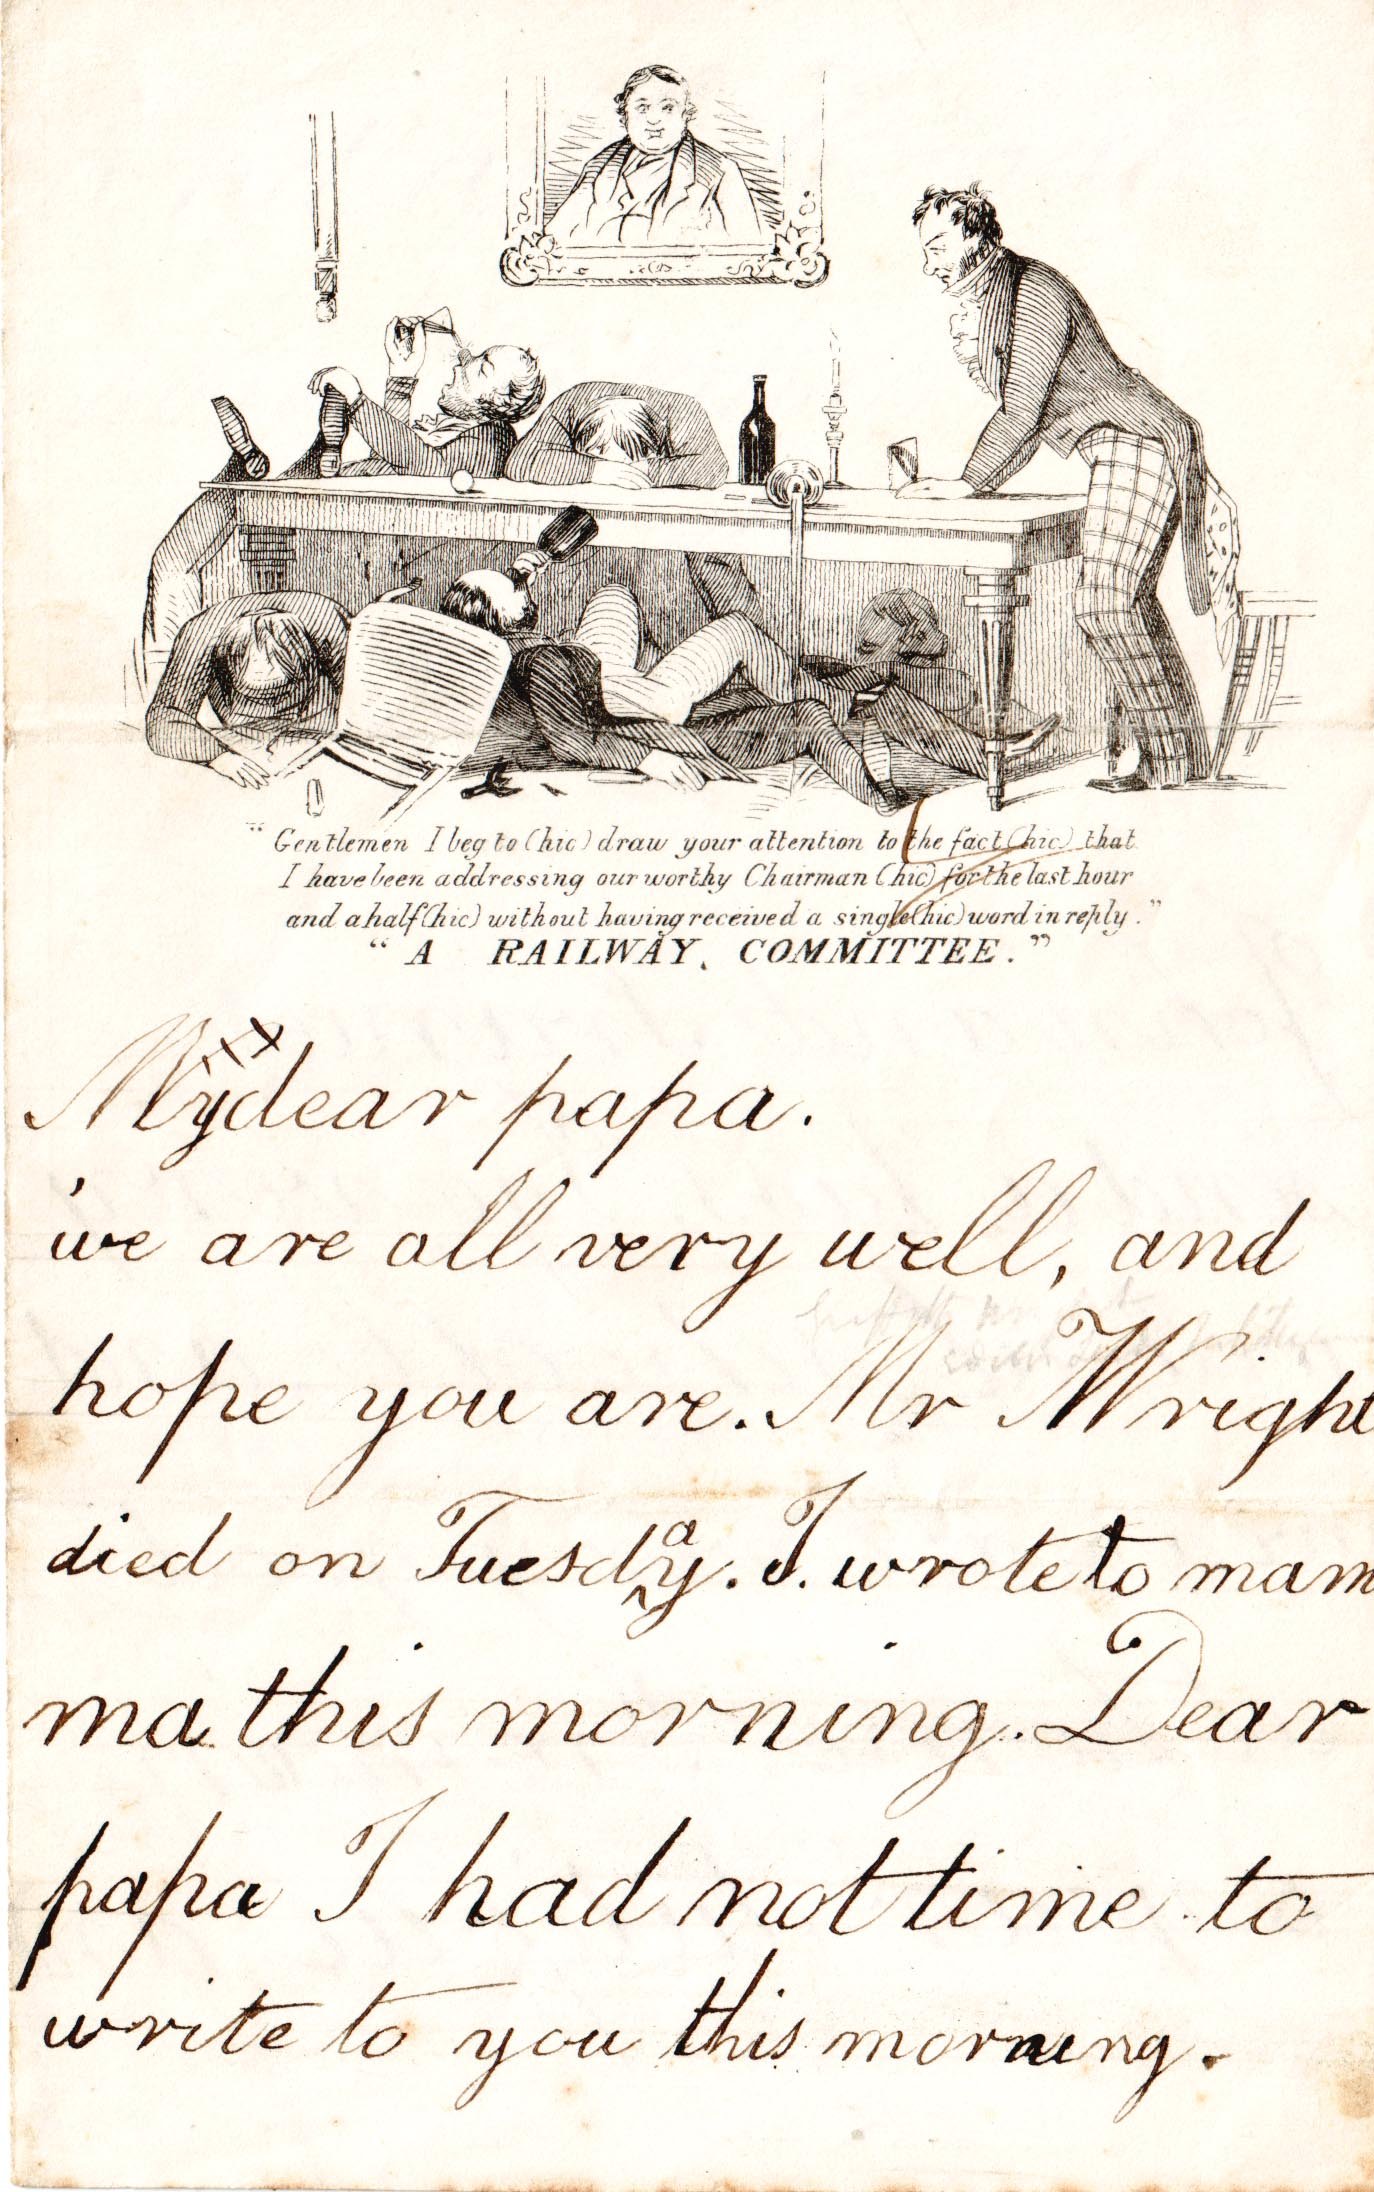 "Gentlemen I beg to (hic) draw your attention to the fact (hic) that
I have been addressing our worthy Chairman (hic) for the last hour
and a half (hic) without having received a single (hic) word in reply."
"A RAILWAY COMMITTEE."
My dear papa.
we are all very well, and
hope you are. Mr Wright
died on Tuesday. I. wrote to mam
ma this morning. Dear
papa I had not time to
write to you this morning.